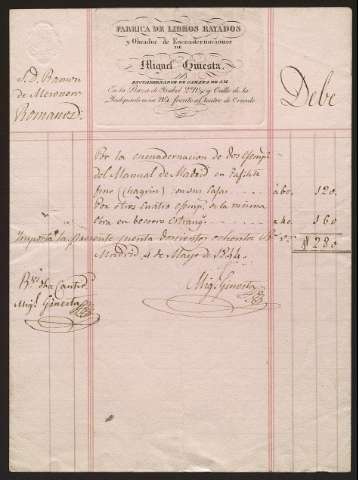 FABRICA DE LIBROS RAYADOS
y Obrador de Encuadernaciones
DE
Miguel Ginesta,
ENCUADERNADOR DE CAMARA DE SM
En la Plaza de Isabel 2ª Nº y Calle de la
Independencia Nº 4 frente al teatro de Oriente
S. D. Ramon
de Mesonero
Romanos
Debe
Por la encuadernacion de dos Ejempl.
del Manual de Madrid en Tafilete
fino (chagrin) en sus cajas à 60. 120.
Por otros cuatro ejempl. de la misma
obra en becerro estrang. à 40. 160
Importa la presente cuenta doscientos ochenta 280
Madrid 4 de Mayo de 1844.
Rvi dha Cantid
Migl Ginesta
Migl Ginesta